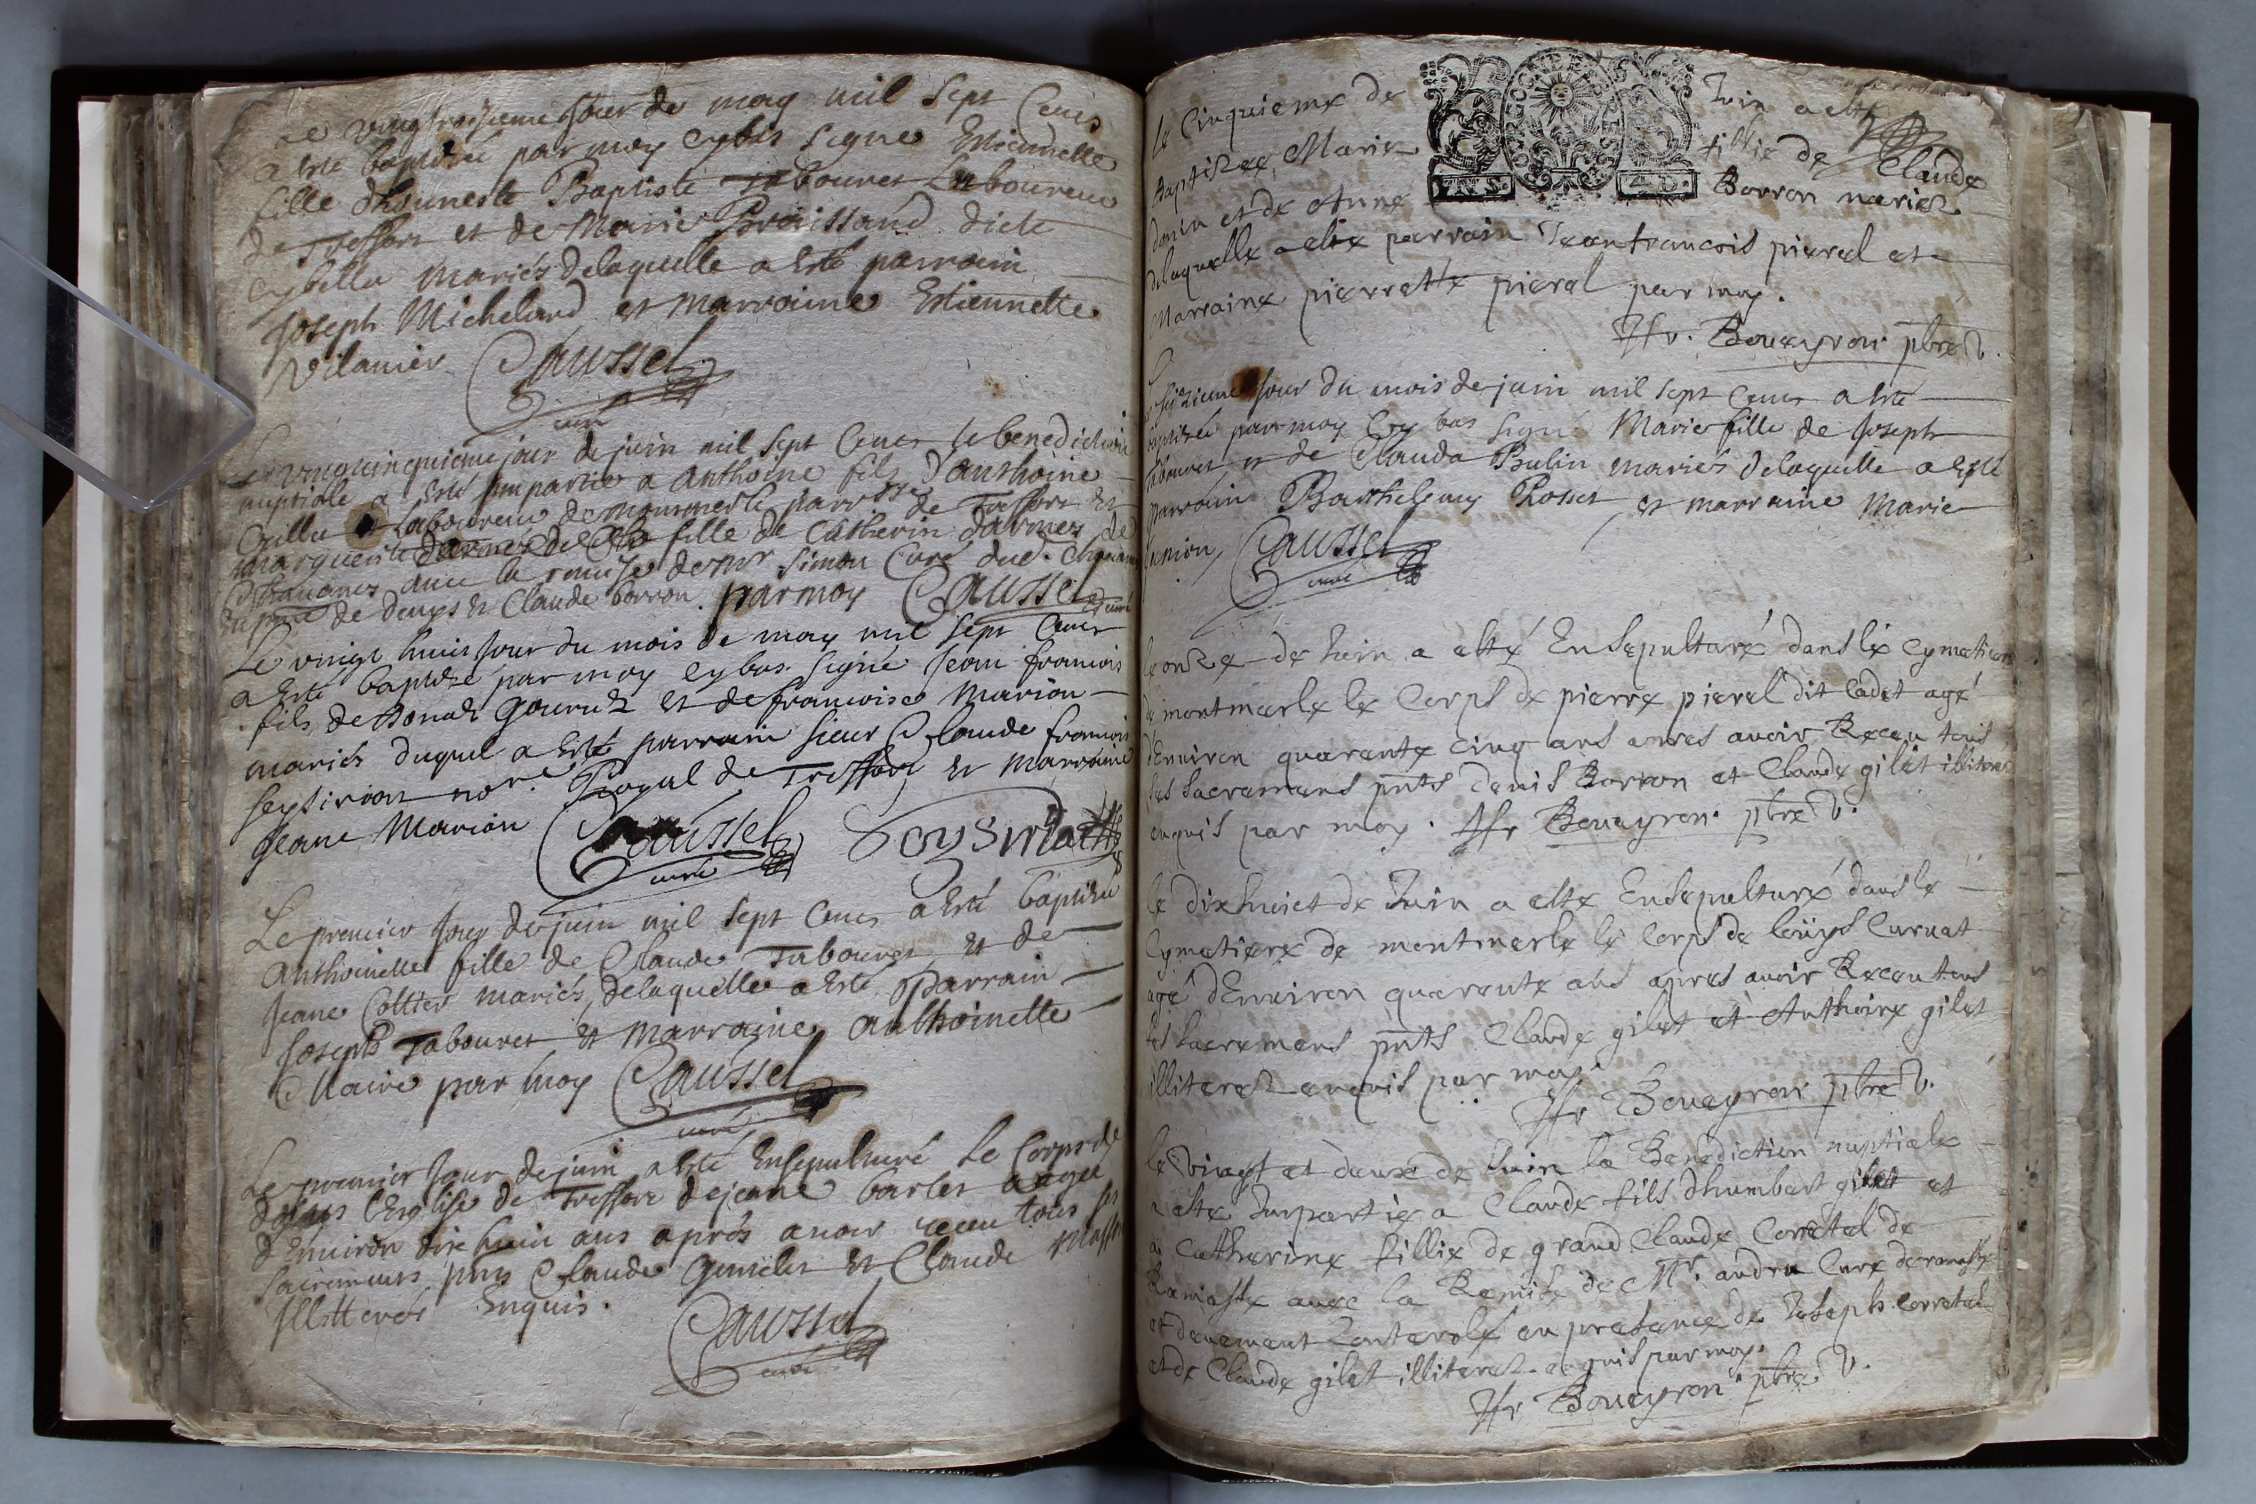 Le vingtroisieme Jour de may mil sept Cens
a Esté baptisée par moy cybas signe Estiennette
fille dhonneste Baptiste Tabouret Laboureur
de Treffort et de Marie Broissand dicte
mariés delaquelle a Esté parrain
Joseph Micheland et marraine Estiennette
Vilanier Caussel
curé
Le vingcinquieme jour de juin mil sept Cens la benediction
nuptiale a Esté impartie a Anthoine fils d'Anthoine
Laboureur de monmerle parroisse de Treffort Et
marguerite fille de Catherin darmes de
auec la remise de Mr Simon Curé dud.
de denys Et Claude borron par moy Caussel curé
Le vingt huit Jour du mois de may mil sept Cens
a Esté baptisé par moy cybas signé Jean francois
fils de Donat Gouruz Et de francoise Marion
mariés duquel a Esté parrain sieur Claude francois
nore. Royal de Treffort Et Marraine
Jeane Marion Caussel
curé
Le premier Jour de juin mil sept Cens a Esté baptisée
Anthoinette fille de Claude Tabouret Et de
Jeane Cottier mariés, delaquelle a Esté parrain
Joseph Tabouret Et Marraine Anthoinette
Claire par moy Caussel
curé
Le premier Jour de juin a Esté Ensepulturé Le Corps de
dans l'Eglise de Treffort de jeane barlet aagée
d'Enuiron dix huit ans aprés auoir receu tous les
sacremens pnts Claude Et Claude
Illitterés Enquis.
Caussel
curé
le Cinquieme de Juin a este
Baptizee Marie fillie de Claude
danin et de Anne Borron mariez
delaquelle a este parrain Jean francois pieral et
Marraine pierrette pieral par moy.
Boueyron pbre V.
sixieme Jour du mois de juin mil sept Cens a Esté
baptisée par moy Cy bas signé Marie fille de Joseph
Tabouret Et de Clauda Bulin mariés delaquelle a Esté
parrain Barthelemy Rosset et marraine Marie
Caussel
curé
le onze de Juin a esté Ensepulturé dans le Cymetiere
de montmerle le Corps de pierre pieral dit Cadet agé
d'Enuiron quarente cinq ans apres auoir Receu tous
les Sacremens pnts denis Borron et Claude gilet illiterés
enquis par moy. Boueyron pbre V.
le dixhuict de Juin a este Ensepulturé dans le
Cymetiere de montmerle le Corps de loüys Curnat
agé d'Enuiron quarente ans apres auoir Receu tous
les Sacremens pnts Claude gilet et Anthoine gilet
illiterez enquis par moy.
Boueyron pbre V.
le vingt et deuxe de Juin la Benediction nuptiale
a este Impartie a Claude fils dhumbert gilet et
a Catherine fillie de grand Claude Corretel de
Ramasse auec la Remise de Mr. andru Cure de ramasse
et deuement Conterolé en presence de Joseph Corretel
et de Claude gilet illiterez enquis par moy.
Boueyron pbre V.